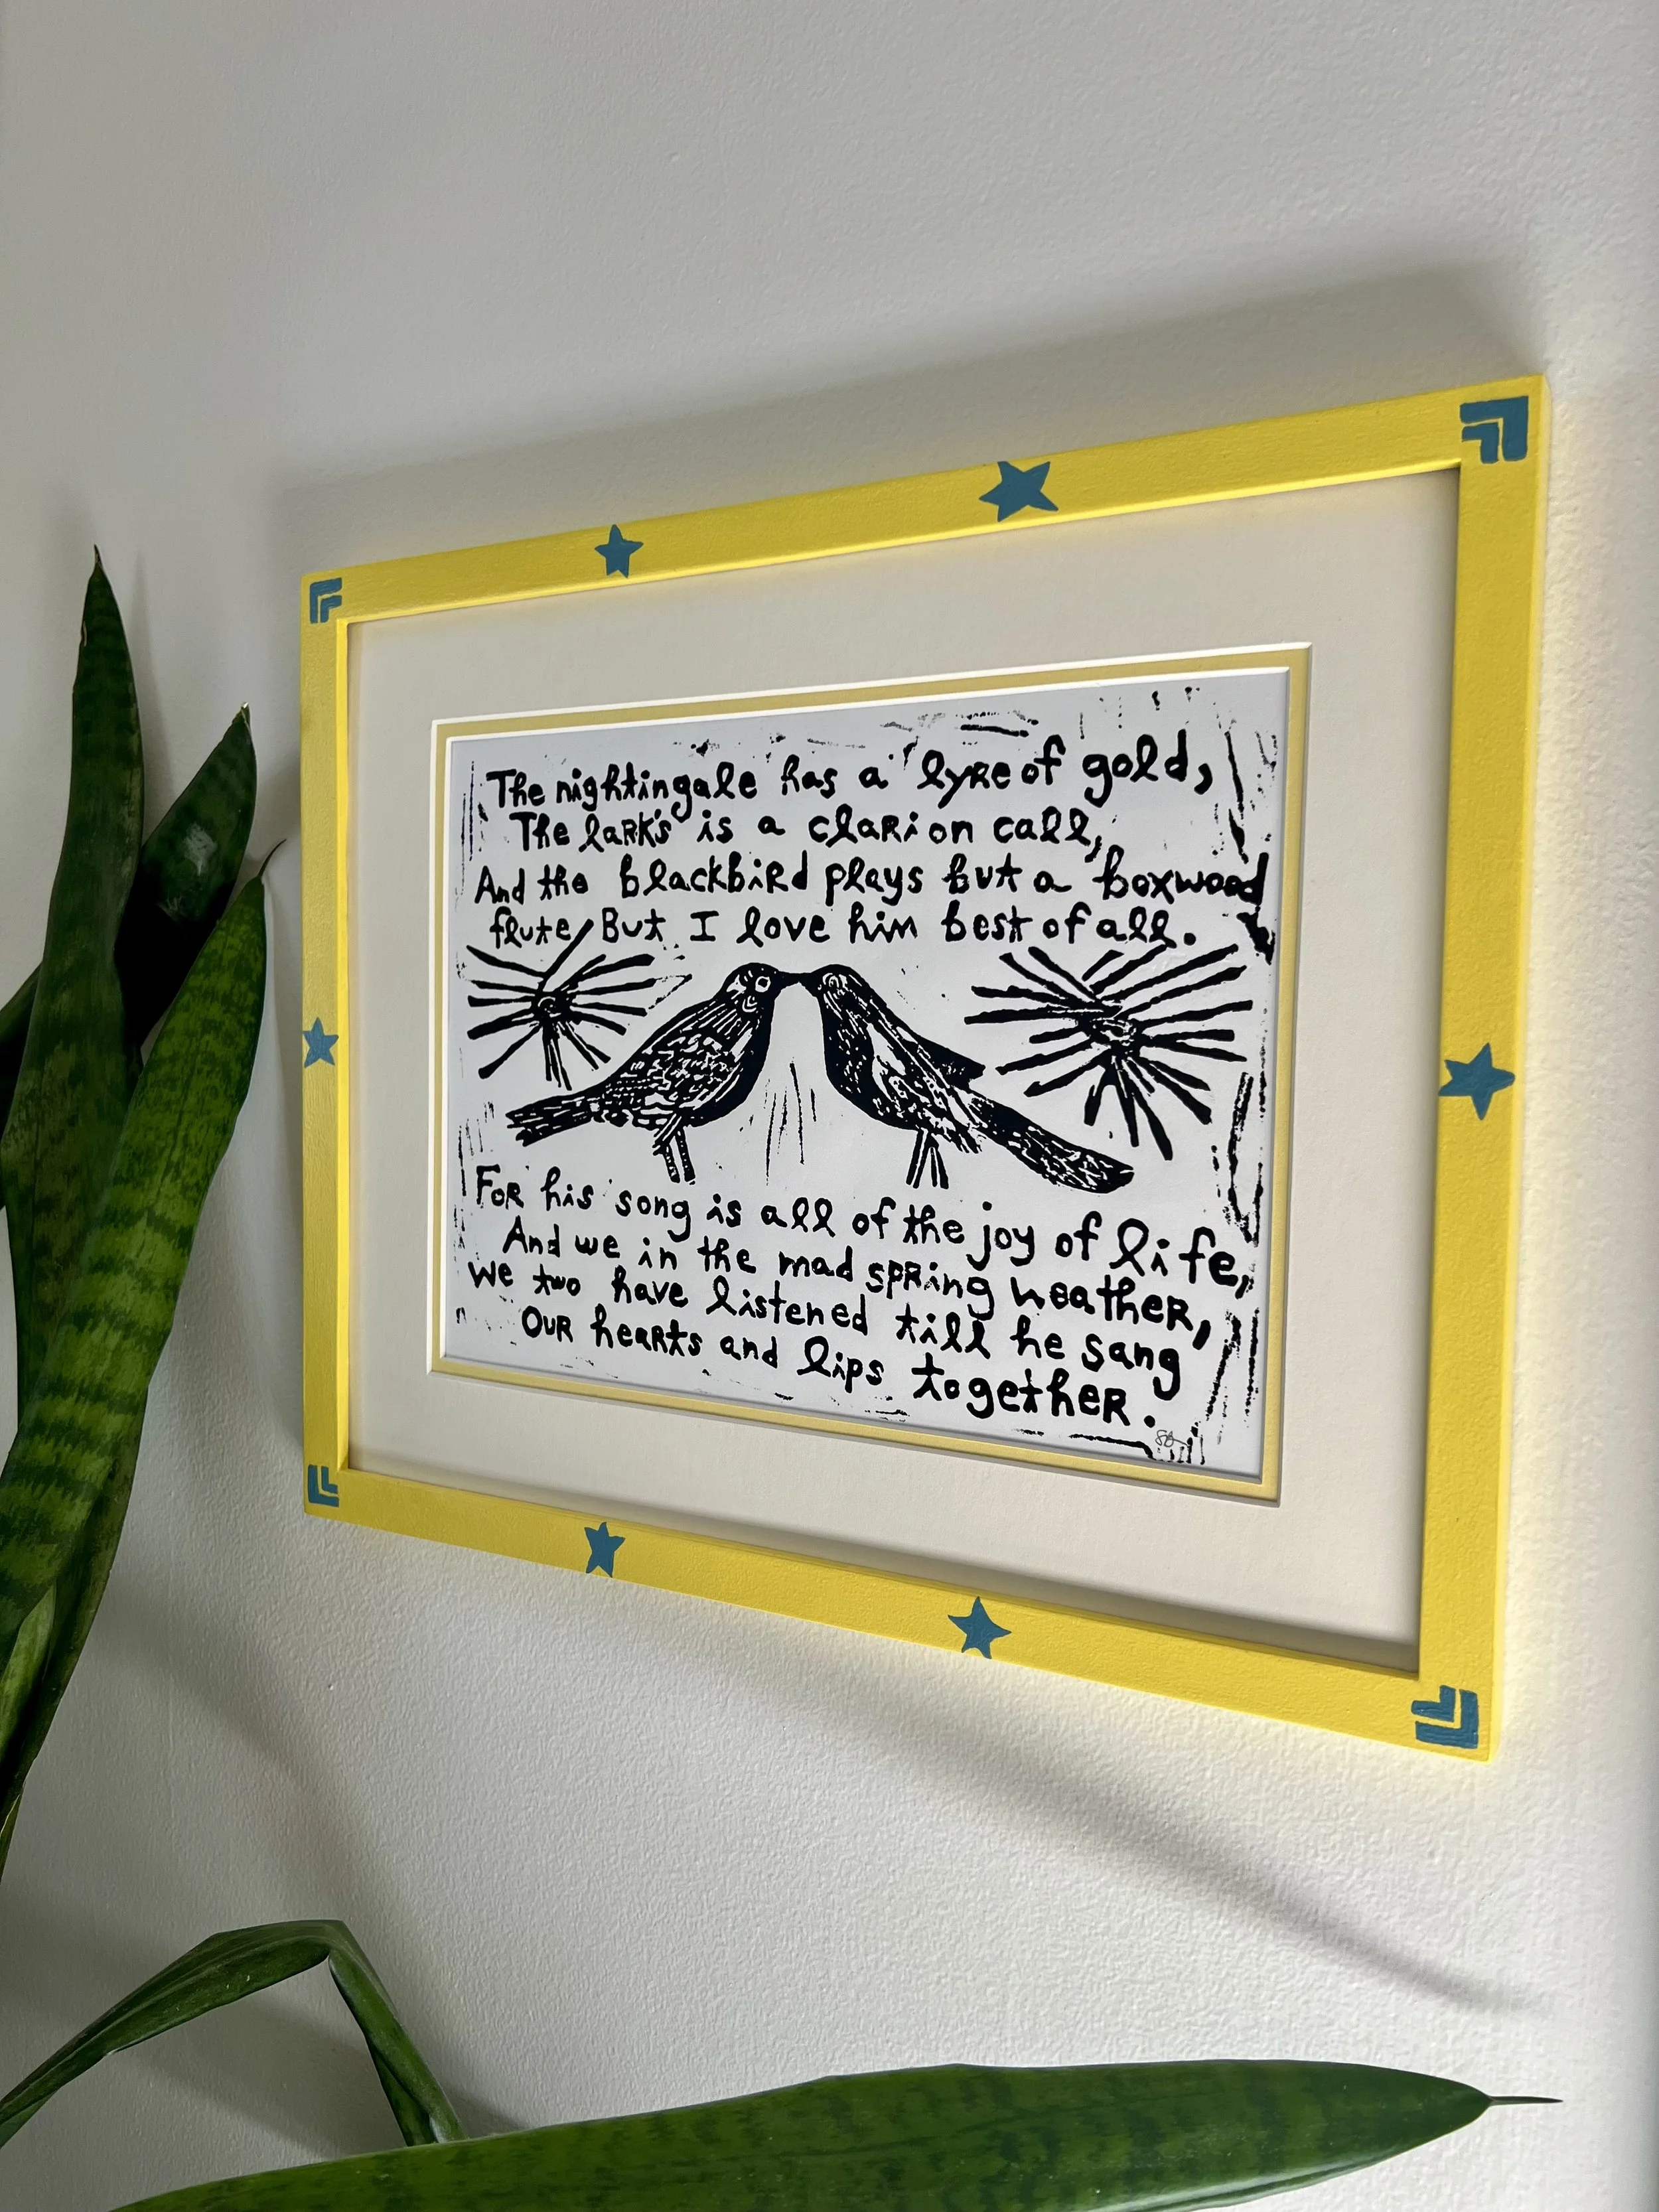 The nightingale has a lyre of gold,
The lark's is a clarion call,
And the blackbird plays but a boxwood
flute, But I love him best of all.
For his song is all of the joy of life,
And we in the mad spring weather,
We two have listened till he sang
Our hearts and lips together.